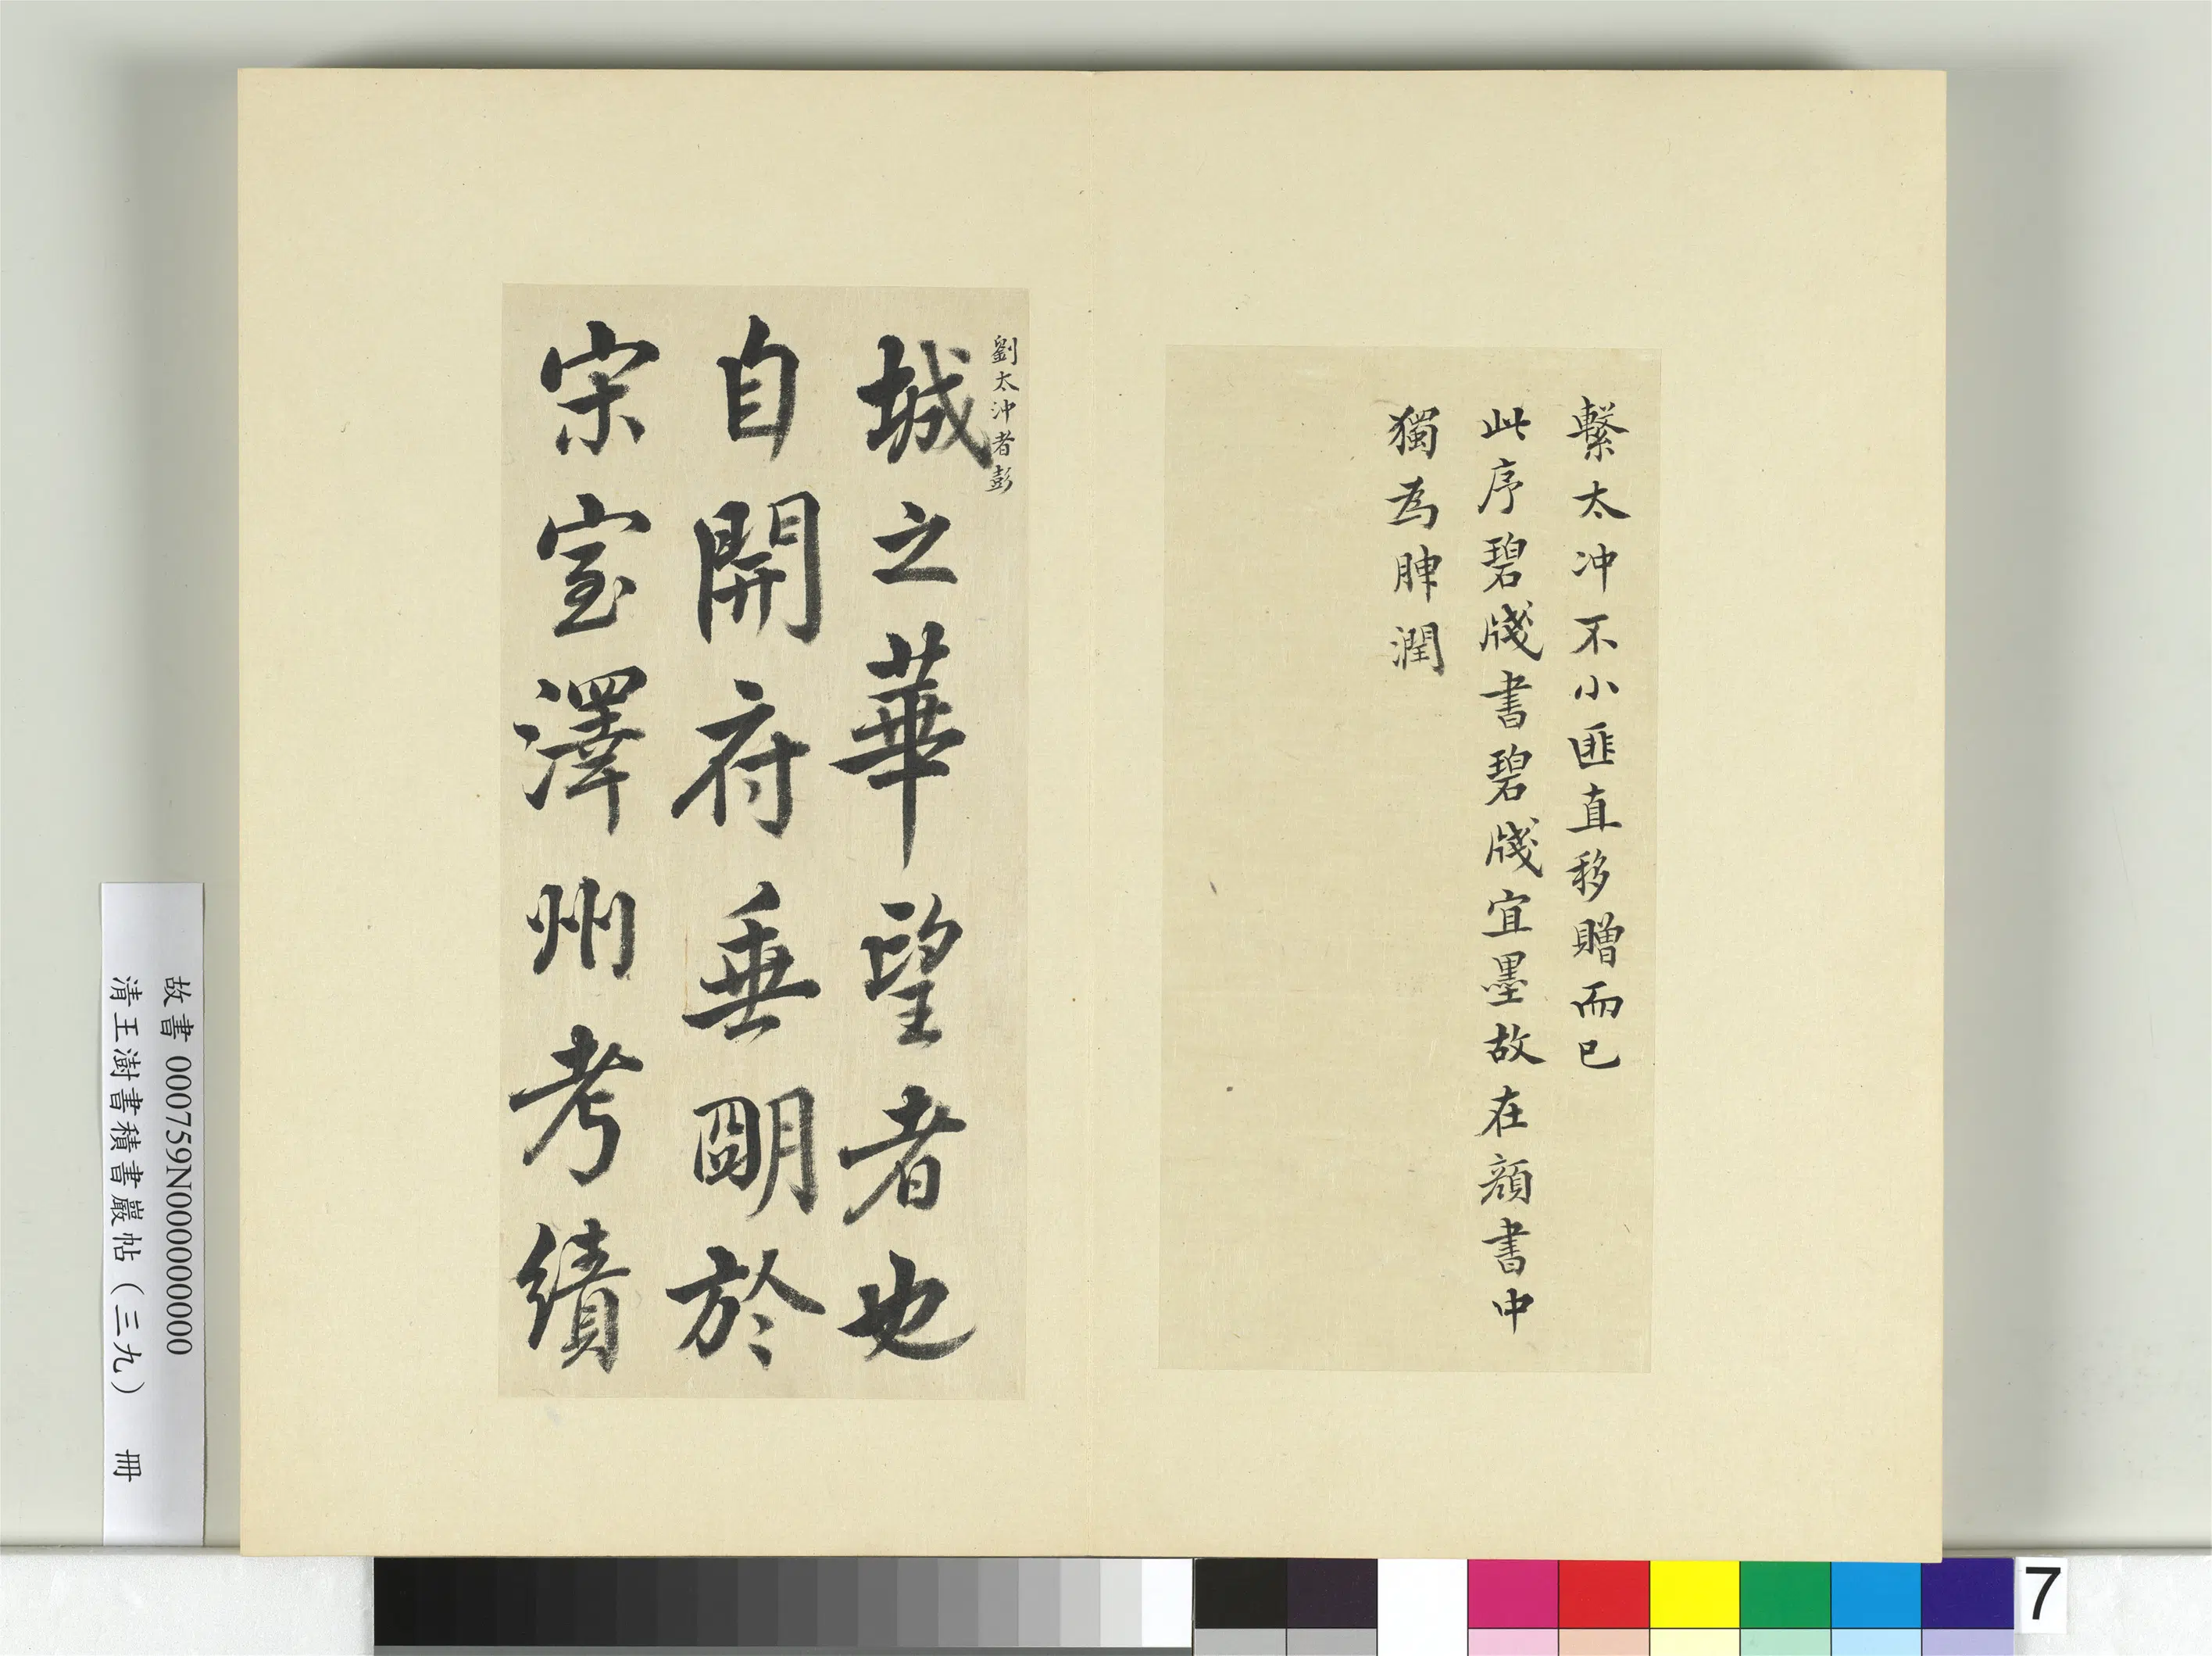 繫太冲不小匪直移贈而已
此序碧牋書碧牋宜墨故在顔書中
獨為腪潤
劉太沖者彭
城之華望者也
自開府垂朙於
宋室澤州考績
故書 000759N000000000
清王澍書積書巖帖(三九) 冊
7